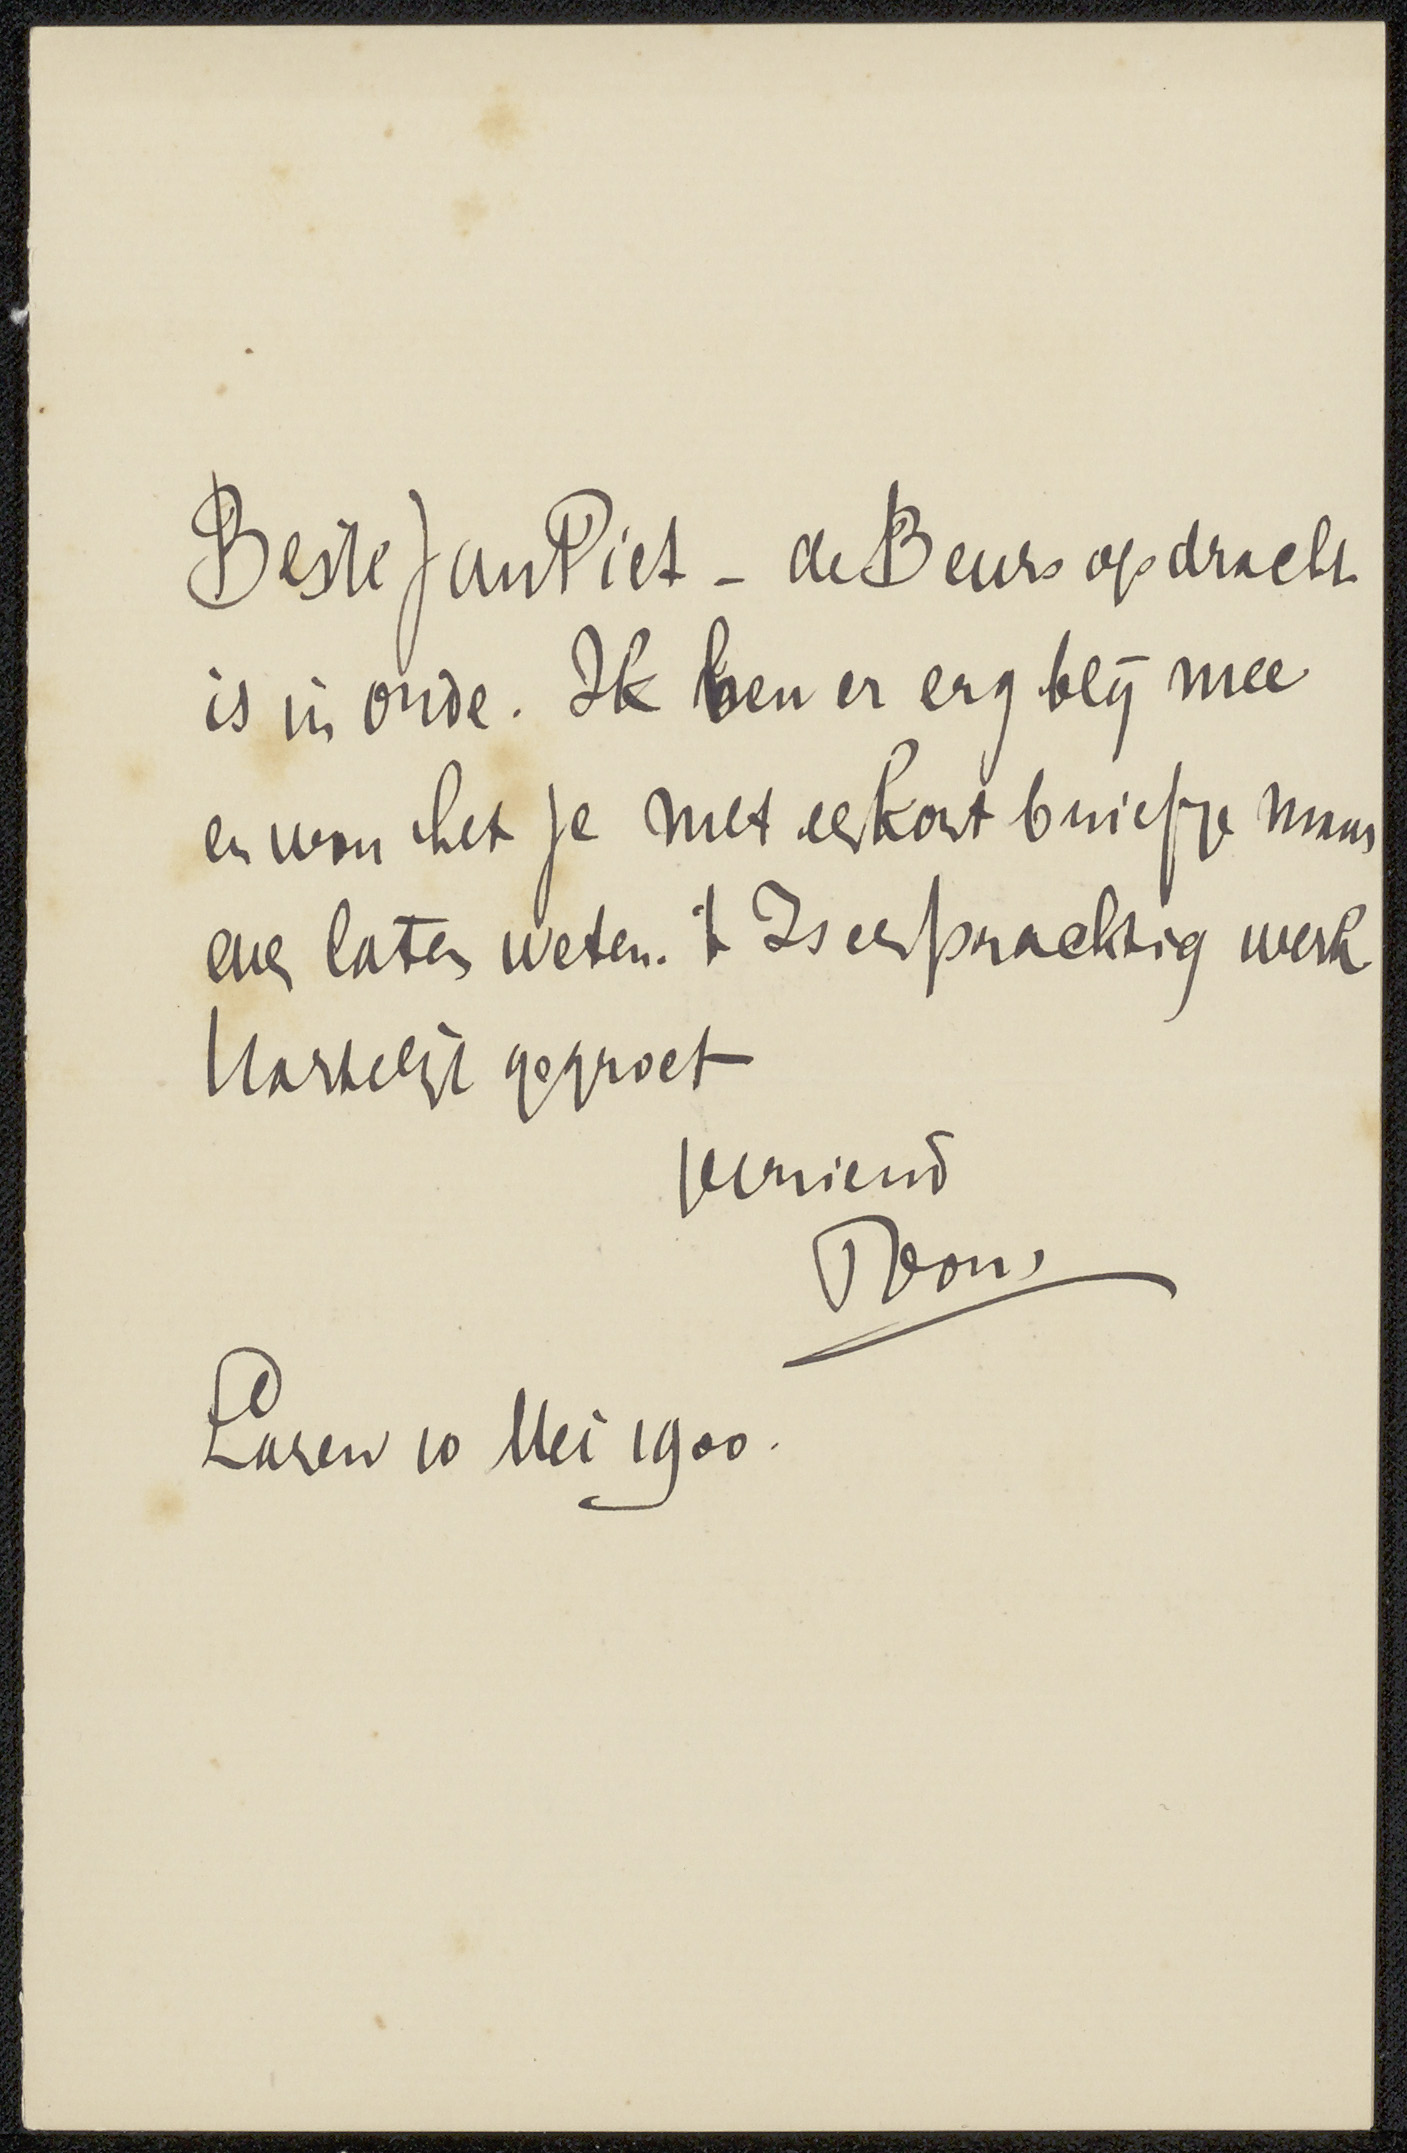 Beste Jan Piet - de Beurs opdracht
is in orde. Ik ben er erg blij mee
en wou het je met een kort briefje maar
even laten weten. 't Is een prachtig werk
Hartelijk gegroet
je vriend
Toon
Laren 10 Mei 1900.